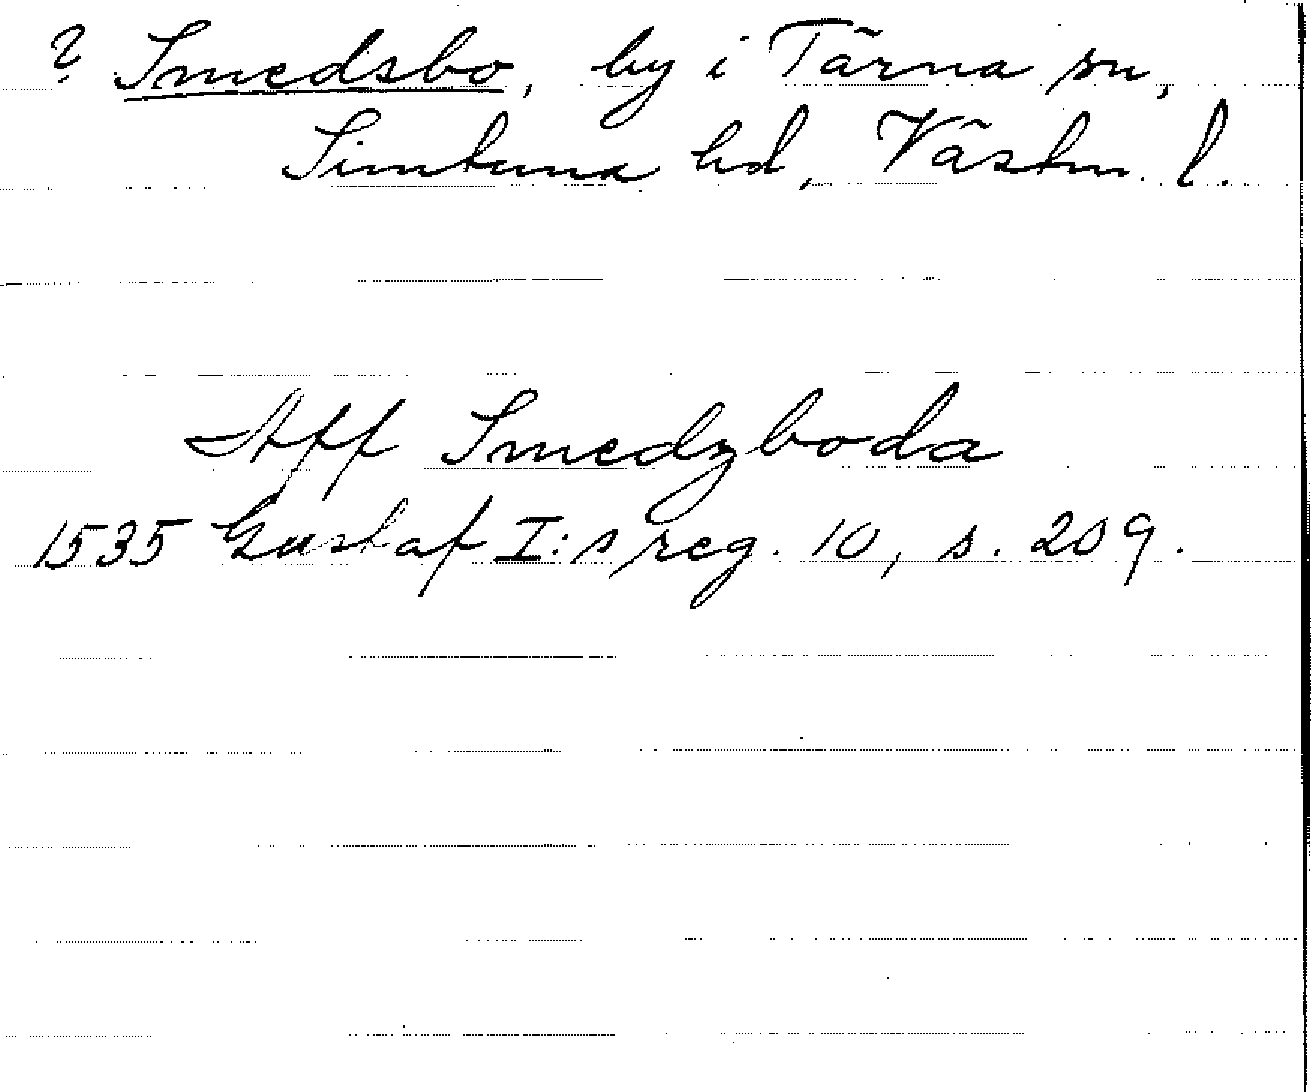 ? Smedsbo, by i Tärna sn,
Simtuna hd, Västm. l.
Aff Smedzboda
1535 Gustaf I:s reg. 10, s. 209.